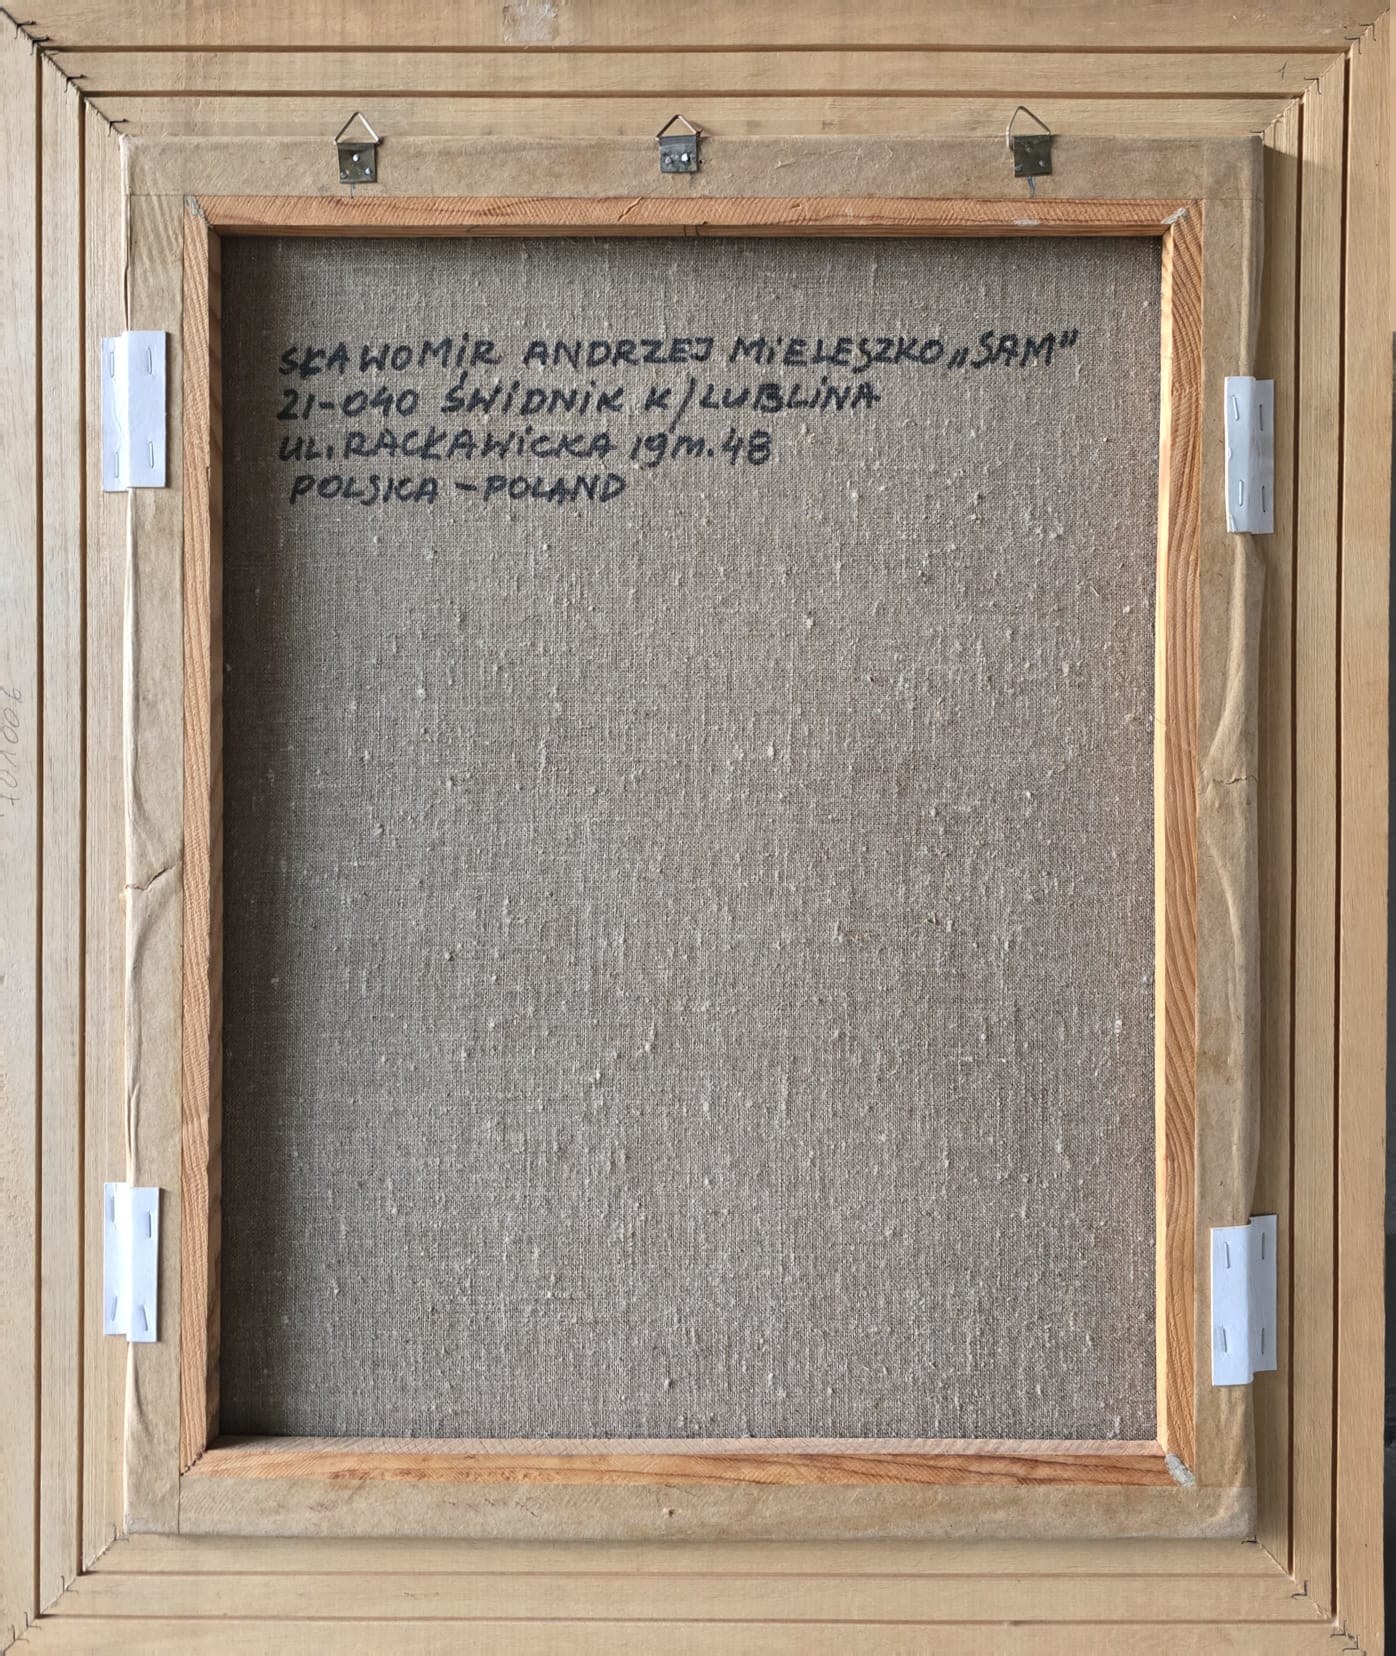 SŁAWOMiR ANDRZEJ MiELESZKO „SAM”
21-040 ŚWiDNiK K/LUBLiNA
UL. RACŁAWiCKA 19 m. 48
POLSKA – POLAND